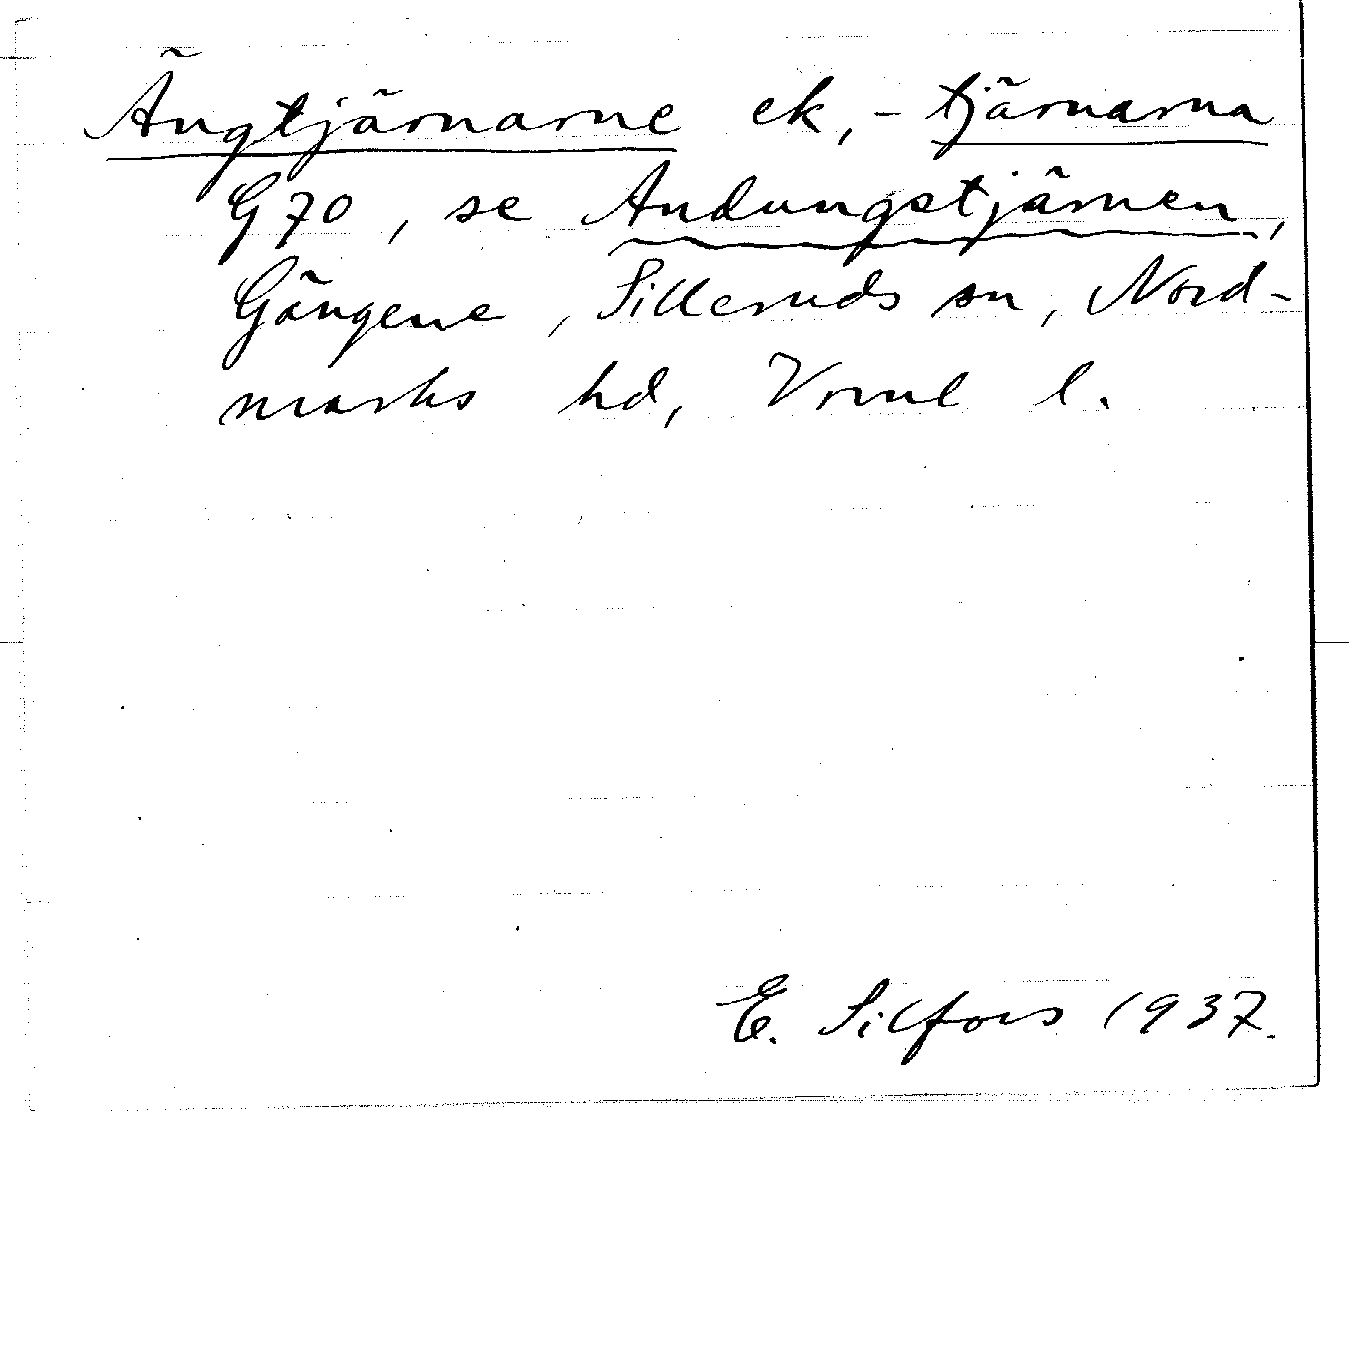 Ängtjärnarne ek, -tjärnarna
G70, se Andungstjärnen,
Gängene, Silleruds sn, Nord-
marks hd, Vrml l.
E. Silfors 1937.